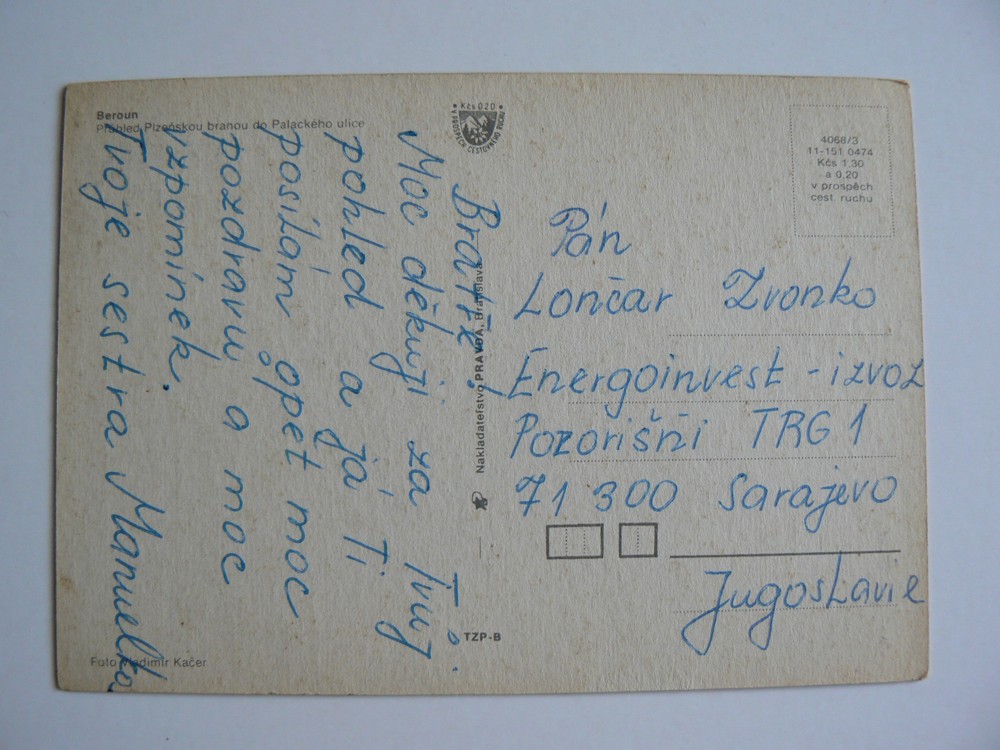 Beroun
Průhled Plzeňskou branou do Palackého ulice
Kčs 0,20
V PROSPĚCH CESTOVNÉHO RUCHU
4068/3
11-151 0474
Kčs 1,30
a 0,20
v prospěch
cest. ruchu
Bratře!
Moc děkuji za Tvůj
pohled a já Ti
posílám opět moc
pozdravů a moc
vzpomínek.
Tvoje sestra Manuelka
Nakladateľstvo PRAVDA, Bratislava
Pán
Lončar Zvonko
Energoinvest - izvoz
Pozorišni TRG 1
71 300 Sarajevo
Jugoslavie
TZP-B
Foto Vladimír Kačer